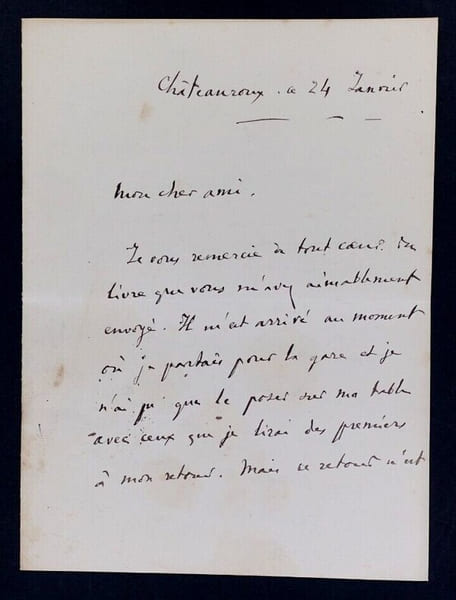 Châteauroux. ce 24 Janvier
Mon cher ami,
Je vous remercie de tout cœur du
livre que vous m'avez aimablement
envoyé. Il m'est arrivé au moment
où je partais pour la gare et je
n'ai pu que le poser sur ma table
avec ceux que je lirai des premiers
à mon retour. Mais ce retour n'est